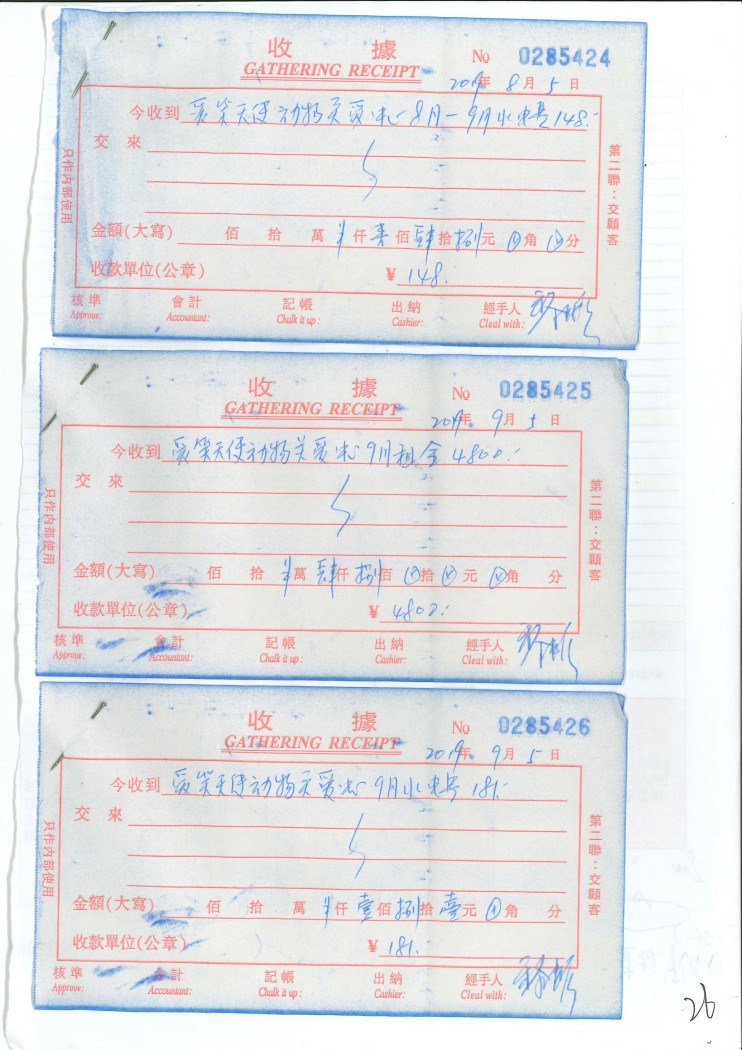 收 據 No 0285424
GATHERING RECEIPT
2019年 8月 5日
今收到 爱笑天使动物关爱中心 8月-9月水电费 148.-
交 來
金額(大寫) 佰 拾 萬 仟 壹 佰 肆 拾 捌 元 角 分
收款單位(公章) ¥ 148.
核準 會計 記帳 出納 經手人
Approve: Accountant: Chalk it up: Cashier: Cleal with:
只作内部使用
第二聯:交顧客
收 據 No 0285425
GATHERING RECEIPT
2019年 9月 5日
今收到 爱笑天使动物关爱中心 9月租金 4800.-
交 來
金額(大寫) 佰 拾 萬 肆 仟 捌 佰 拾 元 角 分
收款單位(公章) ¥ 4800.-
核準 會計 記帳 出納 經手人
Approve: Accountant: Chalk it up: Cashier: Cleal with:
只作内部使用
第二聯:交顧客
收 據 No 0285426
GATHERING RECEIPT
2019年 9月 5日
今收到 爱笑天使动物关爱中心 9月水电费 181.-
交 來
金額(大寫) 佰 拾 萬 仟 壹 佰 捌 拾 壹 元 角 分
收款單位(公章) ¥ 181.
核準 會計 記帳 出納 經手人
Approve: Accountant: Chalk it up: Cashier: Cleal with:
只作内部使用
第二聯:交顧客
26